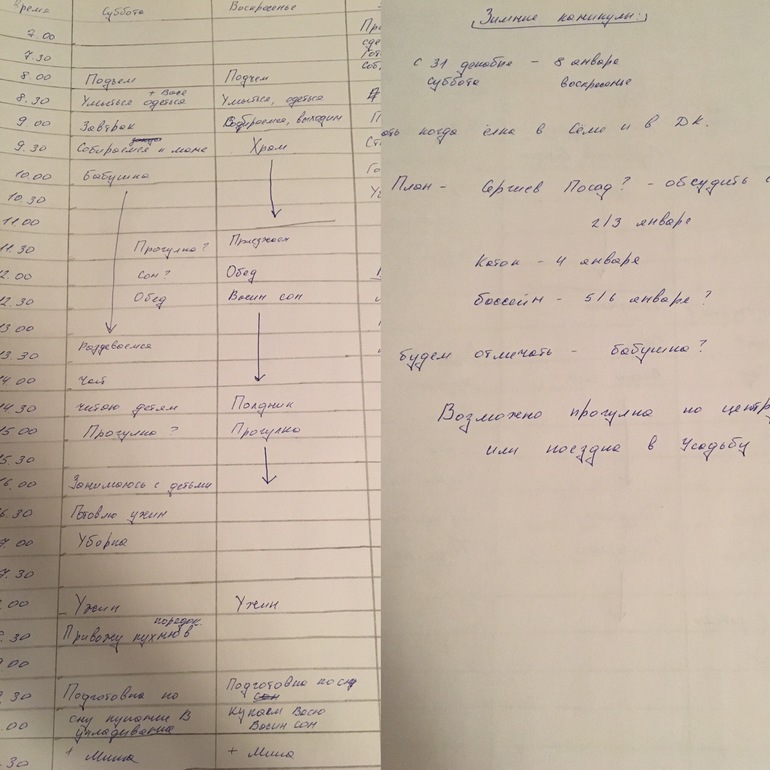 Время Суббота Воскресенье
7.00
7.30
8.00 Подъем Подъем
8.30 Умыться + Вася одеться Умыться, одеться
9.00 Завтрак Собираемся, выходим
9.30 Собираемся к маме Храм
10.00 Бабушка
10.30
11.00
11.30 Прогулка? Приезжаем
12.00 Сон? Обед
12.30 Обед Васин сон
13.00
13.30 Раздеваемся
14.00 Чай
14.30 Читаю детям Полдник
15.00 Прогулка? Прогулка
15.30
16.00 Занимаюсь с детьми
16.30 Готовлю ужин
7.00 Уборка
7.30
.00 Ужин Ужин
.30 Привожу кухню в порядок
.00
.30 Подготовка ко Подготовка ко сну
.00 сну купание В укладывание купаем Васю Васин сон
.30 + Миша + Миша
Зимние каникулы:
с 31 декабря - 8 января
суббота воскресенье
когда ёлка в Сёме и в ДК.
План - Сергиев Посад? - обсудить с
2/3 января
Каток - 4 января
бассейн - 5/6 января?
будем отмечать - бабушка?
Возможно прогулка по центру
или поездка в Усадьбу